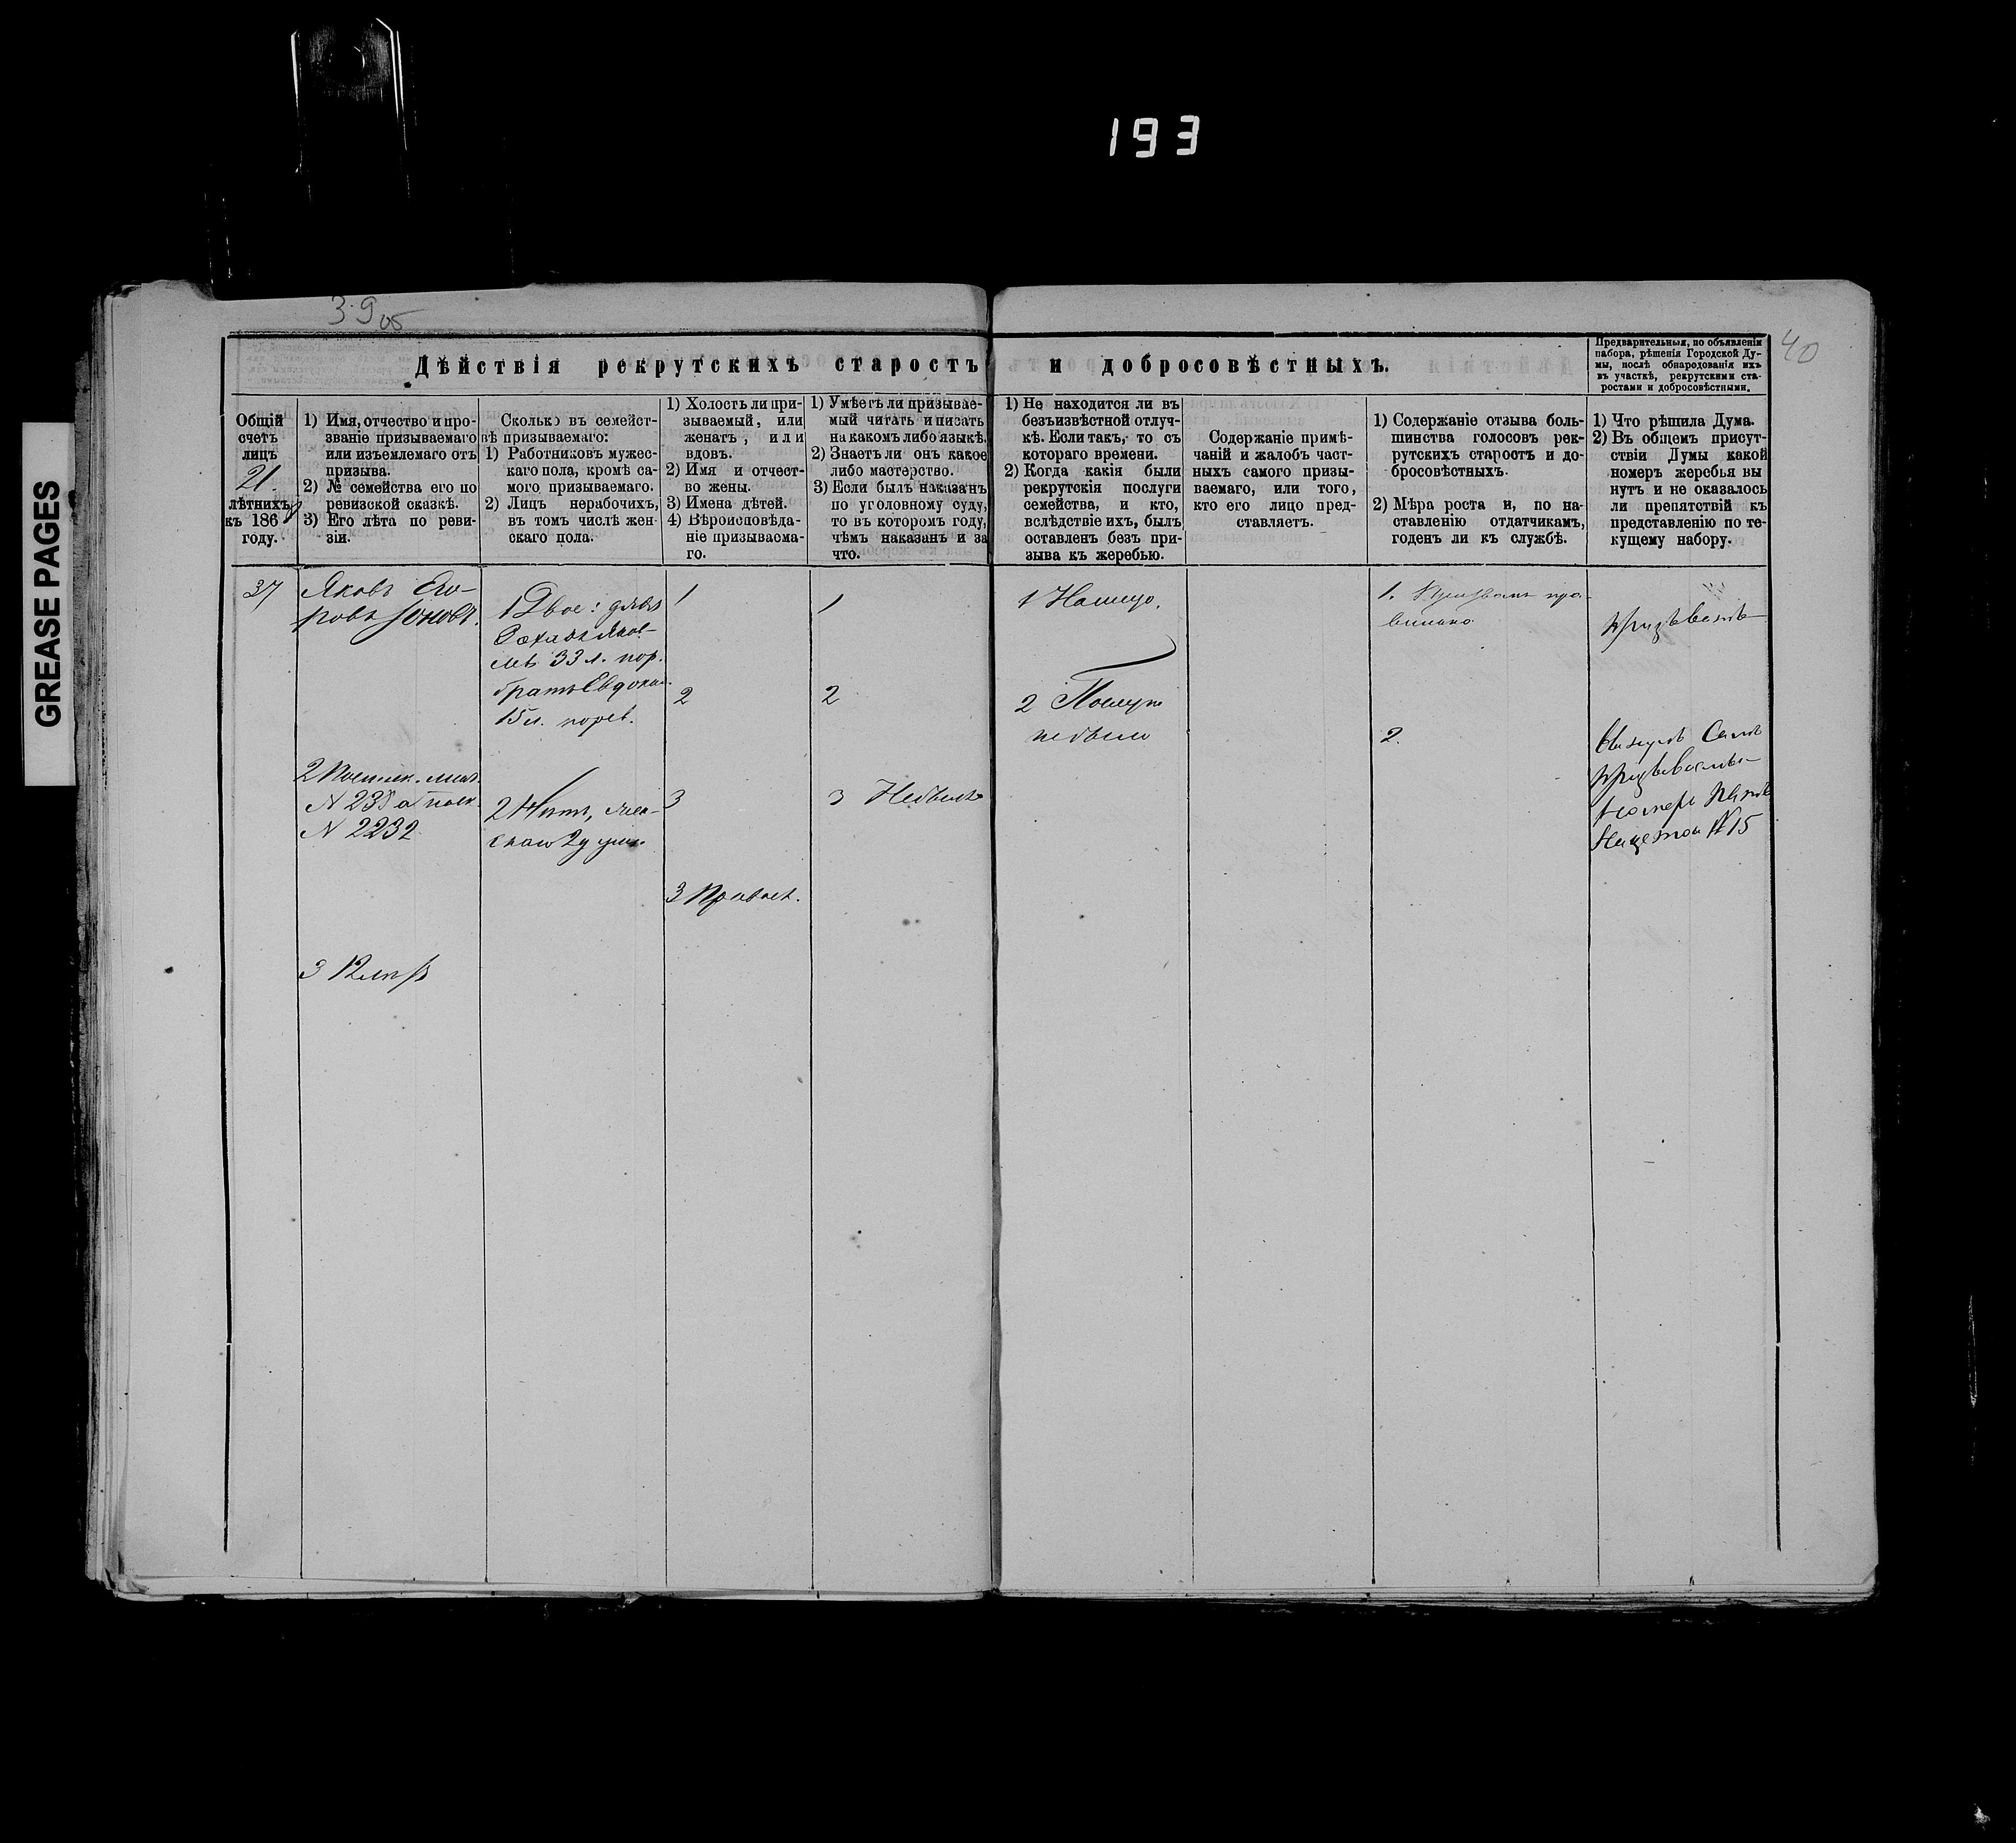 193
GREASE PAGES
39 об
40
Дѣйствія рекрутскихъ старостъ и добросовѣстныхъ.
Предварительныя, по объявленіи
набора, рѣшенія Городской Ду-
мы, послѣ обнародованія ихъ
въ участкѣ, рекрутскими ста-
ростами и добросовѣстными.
Общій
счетъ
лицъ
21
лѣтнихъ
къ 186
году.
1) Имя, отчество и про-
званіе призываемаго
или изъемлемаго отъ
призыва.
2) № семейства его по
ревизской сказкѣ.
3) Его лѣта по реви-
зіи.
Сколько въ семейст-
вѣ призываемаго:
1) Работниковъ мужес-
каго пола, кромѣ са-
мого призываемаго.
2) Лицъ нерабочихъ,
въ томъ числѣ жен-
скаго пола.
1) Холостъ ли при-
зываемый, или
женатъ, или
вдовъ.
2) Имя и отчест-
во жены.
3) Имена дѣтей.
4) Вѣроисповѣда-
ніе призываема-
го.
1) Умѣетъ ли призывае-
мый читать и писать
на какомъ либо языкѣ.
2) Знаетъ ли онъ какое
либо мастерство.
3) Если былъ наказанъ
по уголовному суду,
то въ которомъ году,
чѣмъ наказанъ и за
что.
1) Не находится ли въ
безъизвѣстной отлуч-
кѣ. Если такъ, то съ
котораго времени.
2) Когда какія были
рекрутскія послуги
семейства, и кто,
вслѣдствіе ихъ, былъ
оставленъ безъ при-
зыва къ жеребью.
Содержаніе примѣ-
чаній и жалобъ част-
ныхъ самого призы-
ваемаго, или того,
кто его лицо пред-
ставляетъ.
1) Содержаніе отзыва боль-
шинства голосовъ рек-
рутскихъ старостъ и до-
бросовѣстныхъ.
2) Мѣра роста и, по на-
ставленію отдатчикамъ,
годенъ ли къ службѣ.
1) Что рѣшила Дума.
2) Въ общемъ присут-
ствіи Думы какой
номеръ жеребья вы
нутъ и не оказалось
ли препятствій къ
представленію по те-
кущему набору.
37
Яковъ Его-
ровъ Іоновъ.
2
№ 2232
3 12 лѣтъ
1 Двое: дядя
33 л. по р.
братъ Евдоким
15 л. по рев.
2
1
2
3
3 Правос.
1
2
3 Небылъ
1
2 Послугъ
небыло
1. Призванъ пра-
вильно
2.
Призывать
номеръ
№ 15